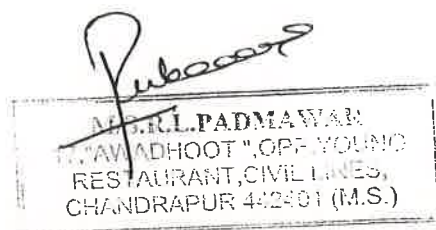 M/S.R.L.PADMAWAR
"AWADHOOT",OPP.YOUNG
RESTAURANT,CIVIL LINES,
CHANDRAPUR 442401 (M.S.)